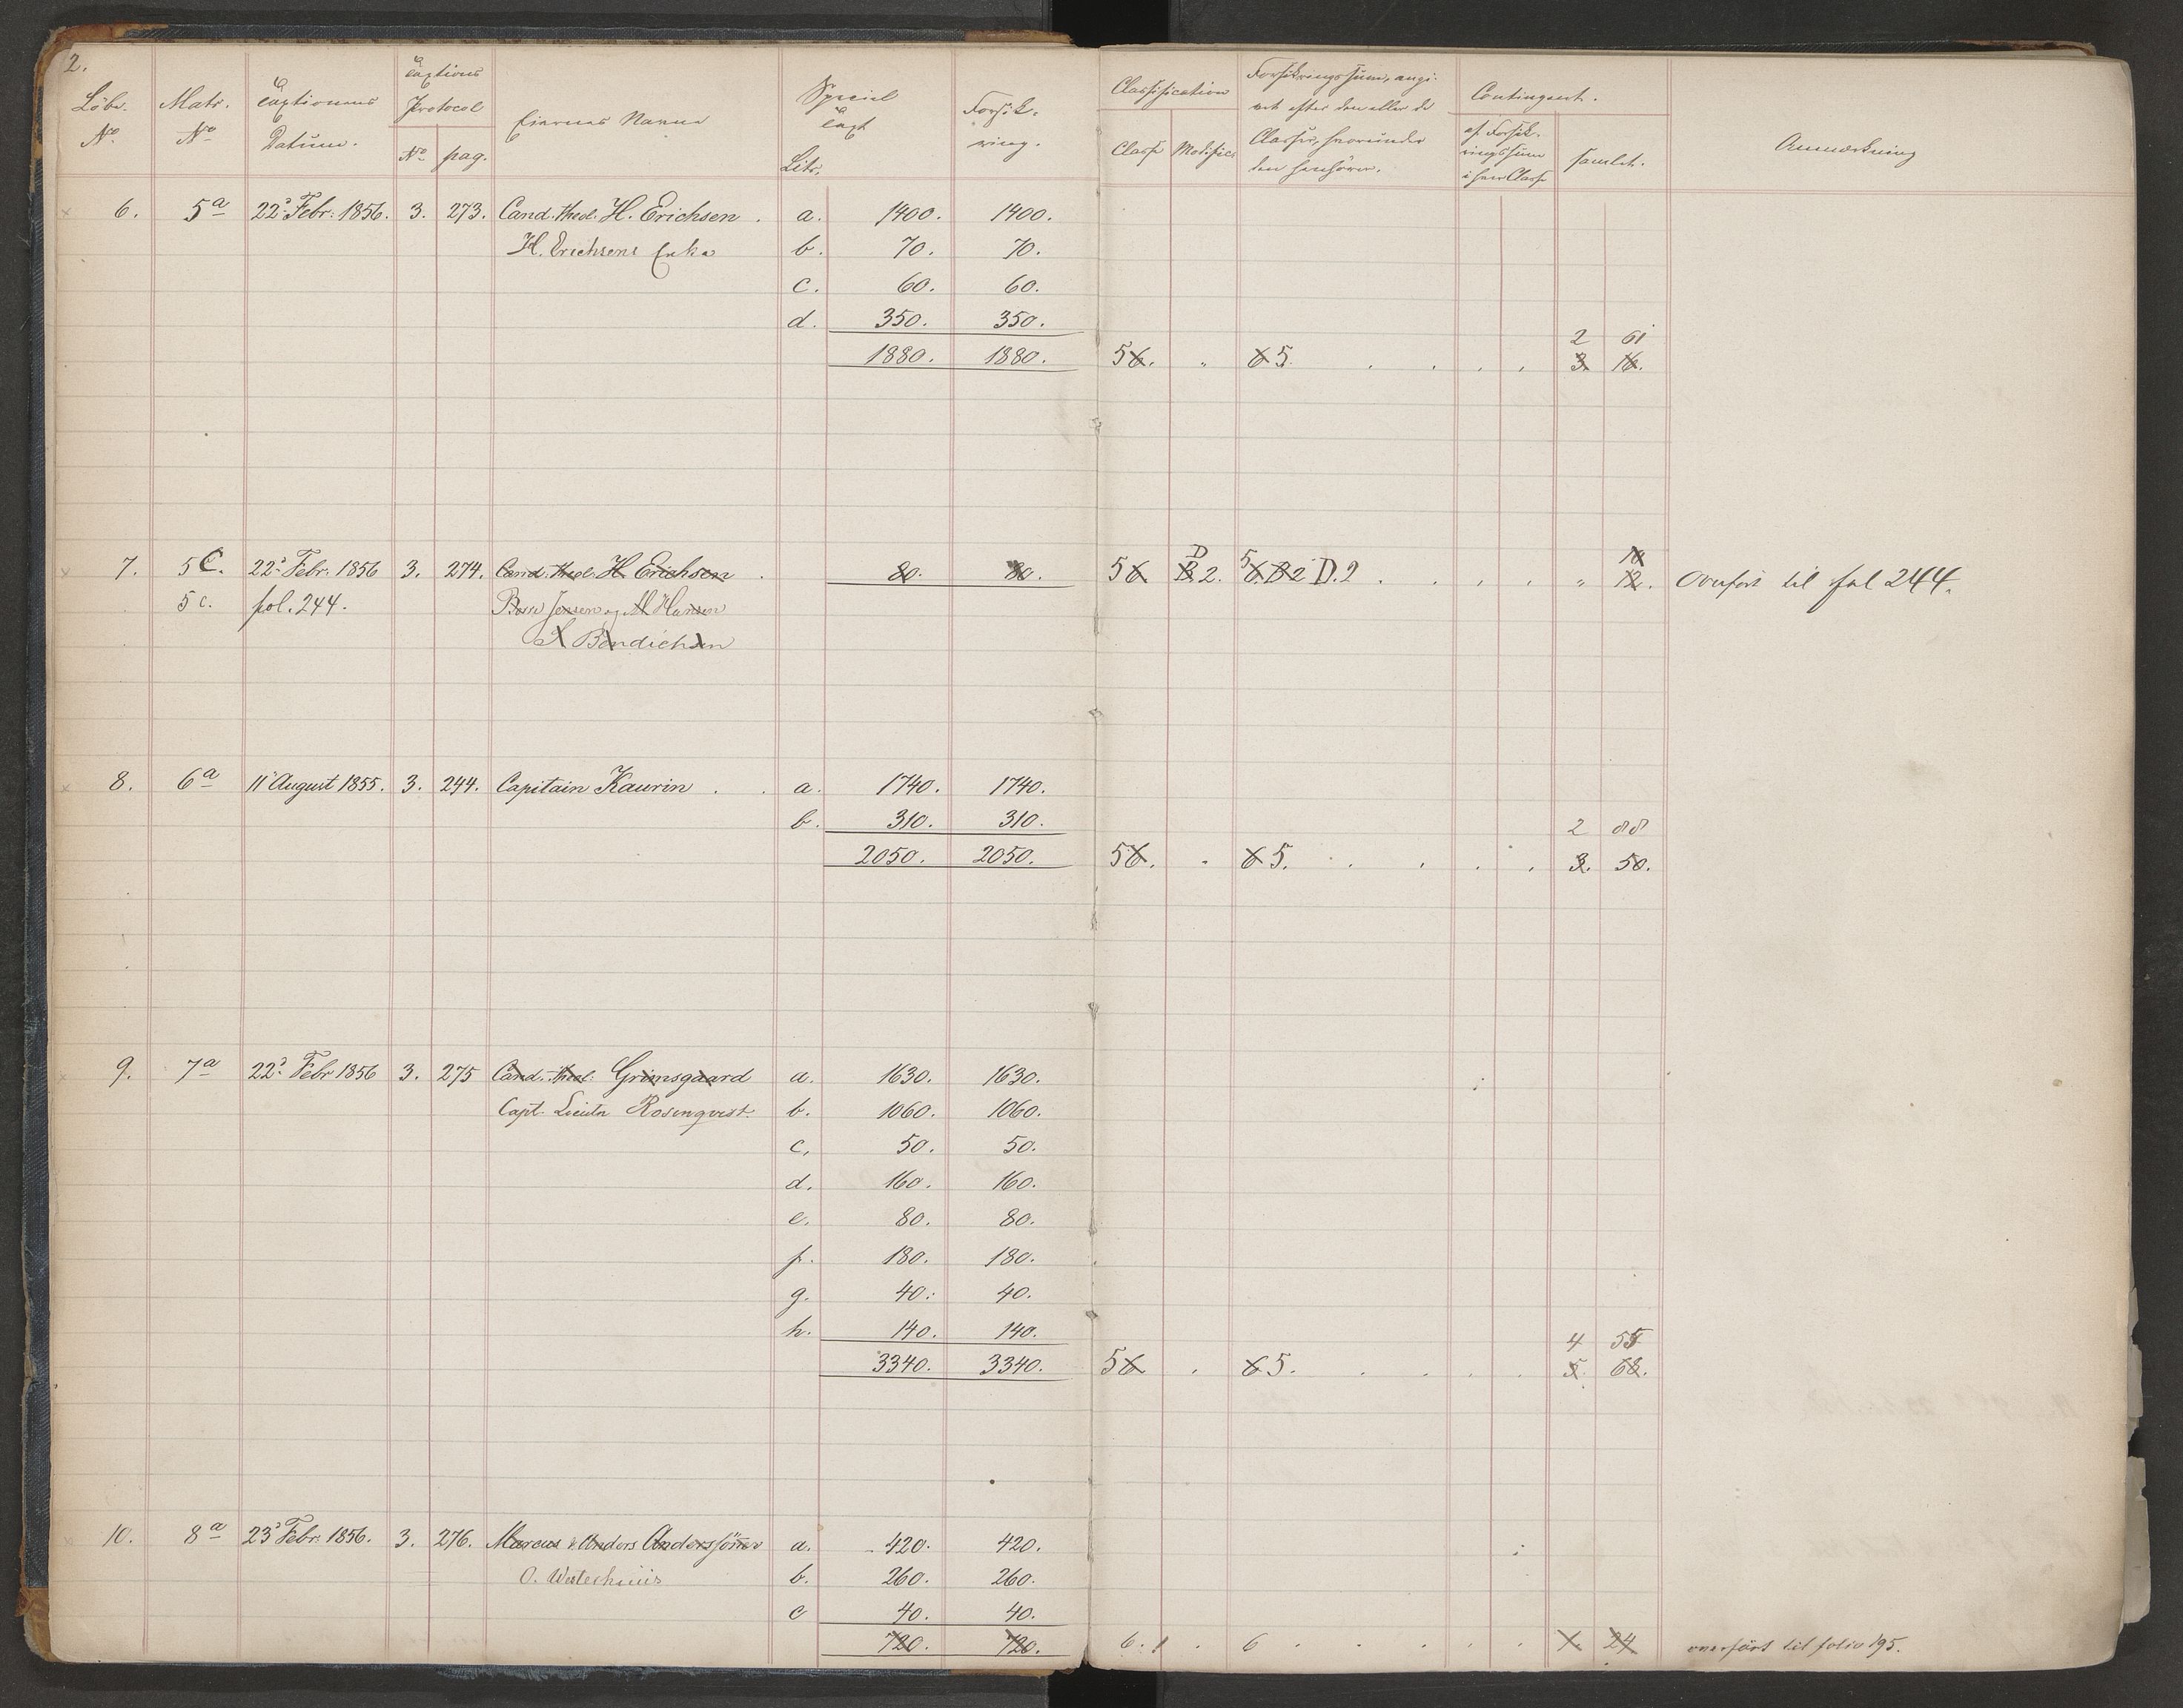 2.
Löbe. No. Matr. No. Taxtionens Datum. Taxtions Protocol No. pag. Eiernes Navne Litr. Speciel Taxt Forsik-ring. Classification Classe Modific. Forsikringssum, angi-vet efter den eller de Classer, hvorunder den henhörer. Contingent. af Forsik-ringssum i hver Classe samlet. Anmærkning
6. 5a 22d. Febr: 1856. 3. 273. Cand. theol. H. Erichsen . a. 1400. 1400.
H. Erichsens Enke b. 70. 70.
c. 60. 60.
d. 350. 350. 2 61
1880. 1880. 56. " 6 5. 3. 16.
7. 5C. 22d. Febr. 1856 3. 274. Cand. theol. H. Erichsen . 80. 80. 56 B D 2. 5 6. B2 D. 2 " 12. 10 Overført til fol 244.
5c. fol. 244. Bern Jensen og M Hansen
S Bendichsen
8. 6a 11 August 1855. 3. 244. Capitain Kaurin . a. 1740. 1740.
b. 310. 310. 2 88
2050. 2050. 56. " 6 5. 3. 50.
9. 7a 22d. Febr 1856 3. 275 Cand. theol: Grimsgaard a. 1630. 1630.
Capt. Lieutn Rosenqvist. b. 1060. 1060.
c. 50. 50.
d. 160. 160.
e. 80. 80.
f. 180. 180.
g. 40. 40.
h. 140. 140. 4 55
3340. 3340. 56 . 6 5. 5. 68.
10. 8a 23d Febr. 1856. 3. 276. Marcus & Anders Anderssönner a. 420. 420.
O. Westerhuus b. 260. 260.
c 40. 40.
720. 720. 6. 1 . 6 1. 24 overført til folio 195.